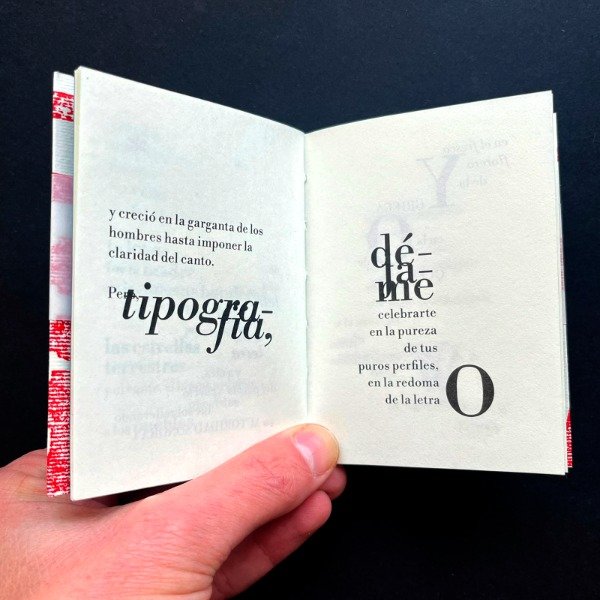 y creció en la garganta de los
hombres hasta imponer la
claridad del canto.
Pero,
tipogra-
fía,
dé-
ja-
me
celebrarte
en la pureza
de tus
puros perfiles,
en la redoma
de la letra
O